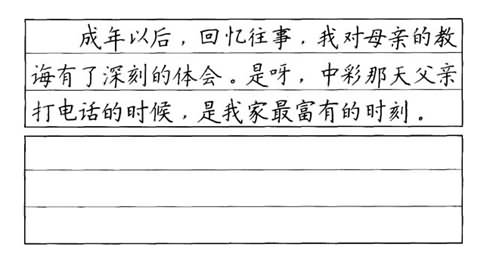 成年以后，回忆往事，我对母亲的教
诲有了深刻的体会。是呀，中彩那天父亲
打电话的时候，是我家最富有的时刻。